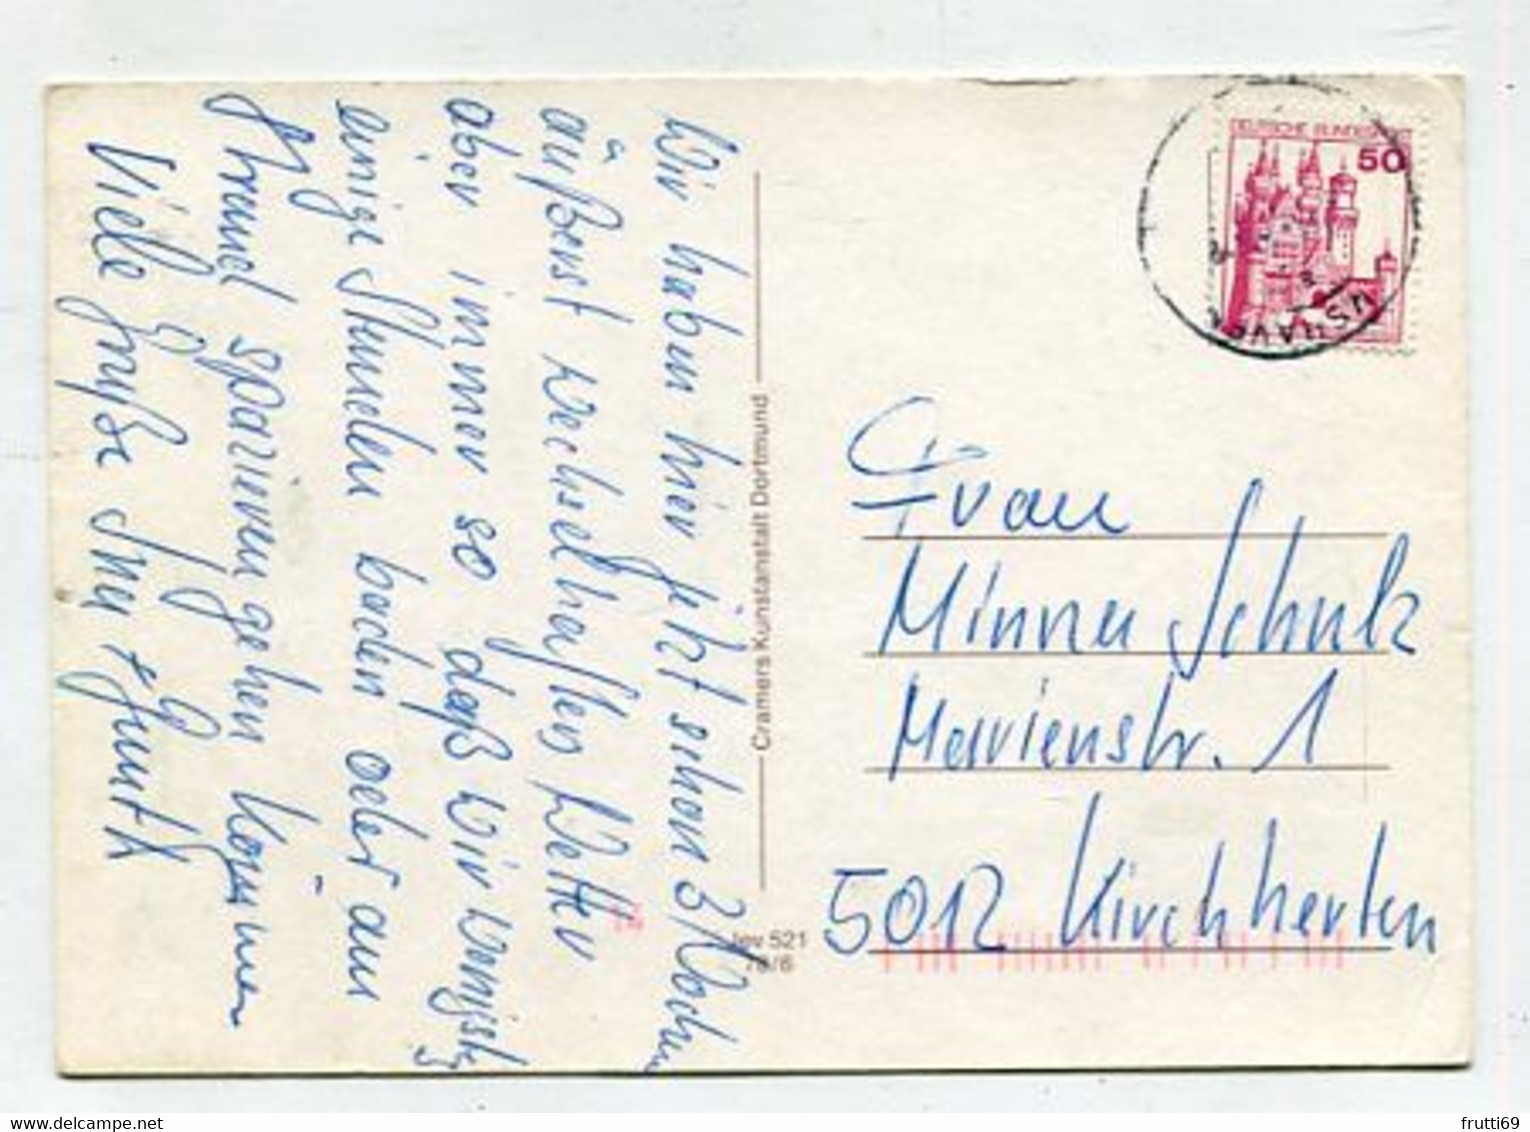 Wir haben hier jetzt schon 3 Wochen
äußerst wechselhaftes Wetter
aber immer so daß wir wenigstens
einige Stunden baden oder am
Strand spazierengehen können
Viele Grüße
Cramers Kunstanstalt Dortmund
521
DEUTSCHE BUNDESPOST
50
Frau
Minna Schulz
Marienstr. 1
5012 Kirchherten
frutti69